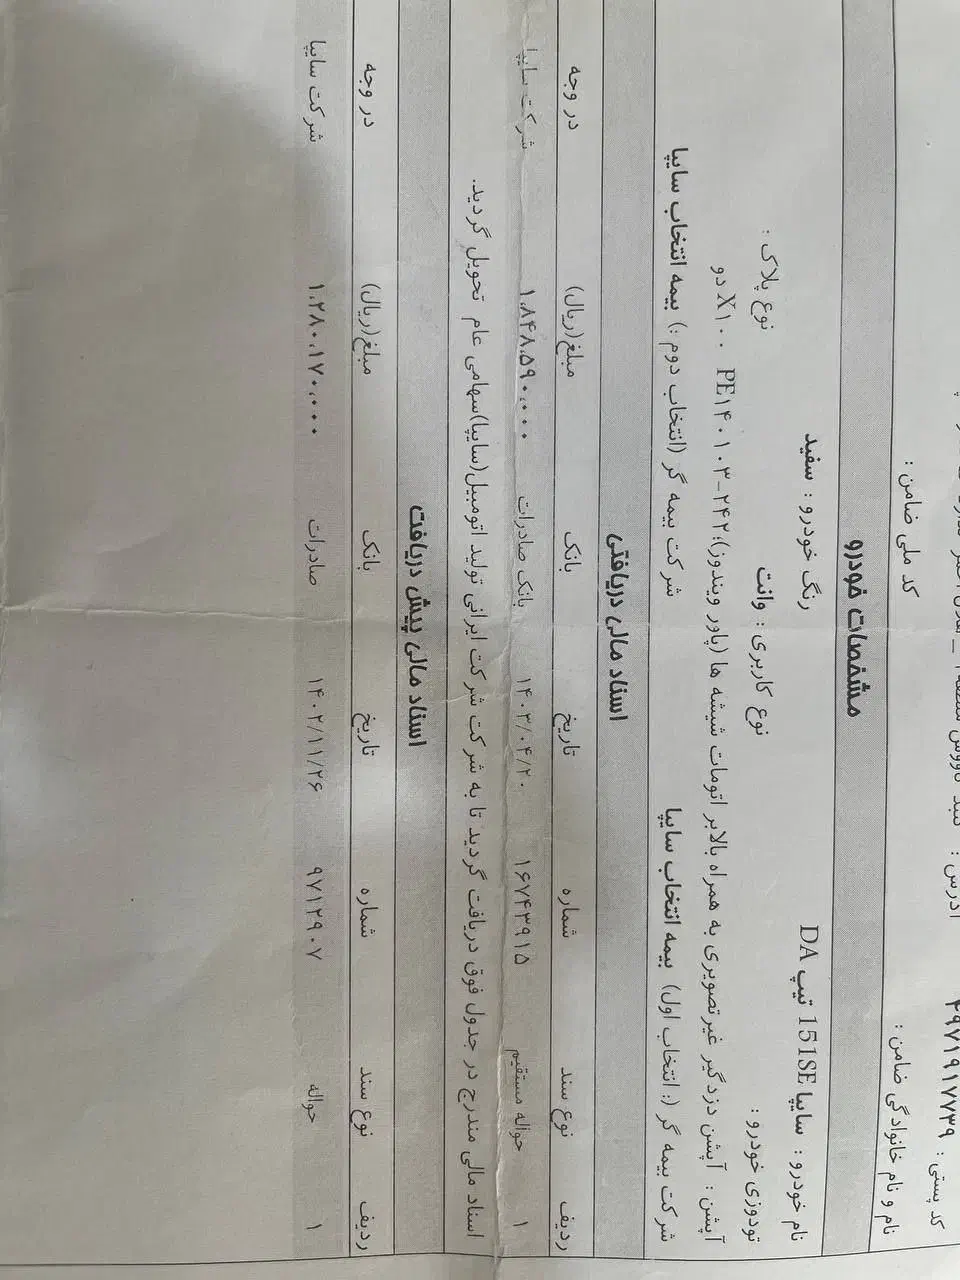 کد پستی : ۴۹۷۱۹۱۷۷۳۹ آدرس : گنبد کاووس
نام و نام خانوادگی ضامن : کد ملی ضامن :
مشخصات خودرو
نام خودرو : سایپا 151SE تیپ DA رنگ خودرو : سفید
تودوزی خودرو : نوع کاربری : وانت نوع پلاک :
آپشن : آپشن دزدگیر غیر تصویری به همراه بالابر اتومات شیشه ها (پاور ویندوز)؛PE۱۴۰۱۰۳-۲۴۲ X۱۰۰ دو
شرکت بیمه گر (: انتخاب اول) بیمه انتخاب سایپا شرکت بیمه گر (انتخاب دوم :) بیمه انتخاب سایپا
اسناد مالی دریافتی
ردیف نوع سند شماره تاریخ بانک مبلغ(ریال) در وجه
۱ حواله مستقیم ۱۶۷۴۳۹۱۵ ۱۴۰۳/۰۴/۲۰ بانک صادرات ۱،۸۴۸،۵۹۰،۰۰۰ شرکت سایپا
اسناد مالی مندرج در جدول فوق دریافت گردید تا به شرکت شرکت ایرانی تولید اتومبیل(سایپا)سهامی عام تحویل گردید.
اسناد مالی پیش دریافت
ردیف نوع سند شماره تاریخ بانک مبلغ(ریال) در وجه
۱ حواله ۹۷۱۲۹۰۷ ۱۴۰۲/۱۱/۲۶ صادرات ۱،۲۸۰،۱۷۰،۰۰۰ شرکت سایپا